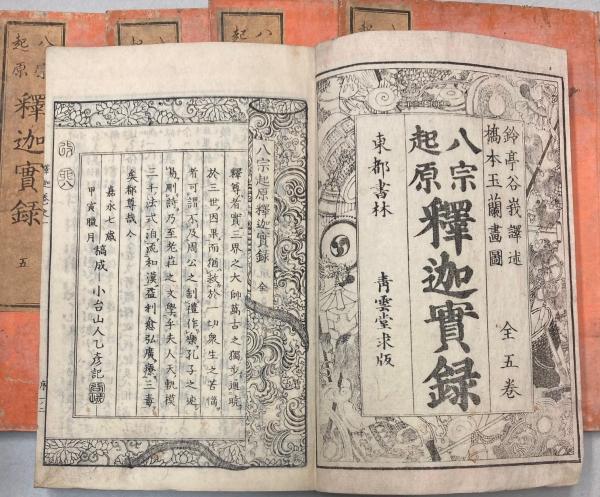 鈴亭谷峩譯述
橋本玉蘭畫圖
八宗
起原
釋迦實録
全五卷
東都書林
青雲堂求版
八宗起原釋迦實録 全
釋尊者實三界之大師萬古之獨步通曉
於三世因果而猶救於一切衆生之苦惱
者可謂不及周公之制禮作樂孔子之述
易刪詩乃至老莊之文學乎夫人天軌模
三千法式泊流和漢益利愈弘廣療三毒
矣都尊哉今
嘉永七歳
甲寅臘月
稿成
小台山人乙彦記
序ノ二
八宗
起原
釋迦實録
五